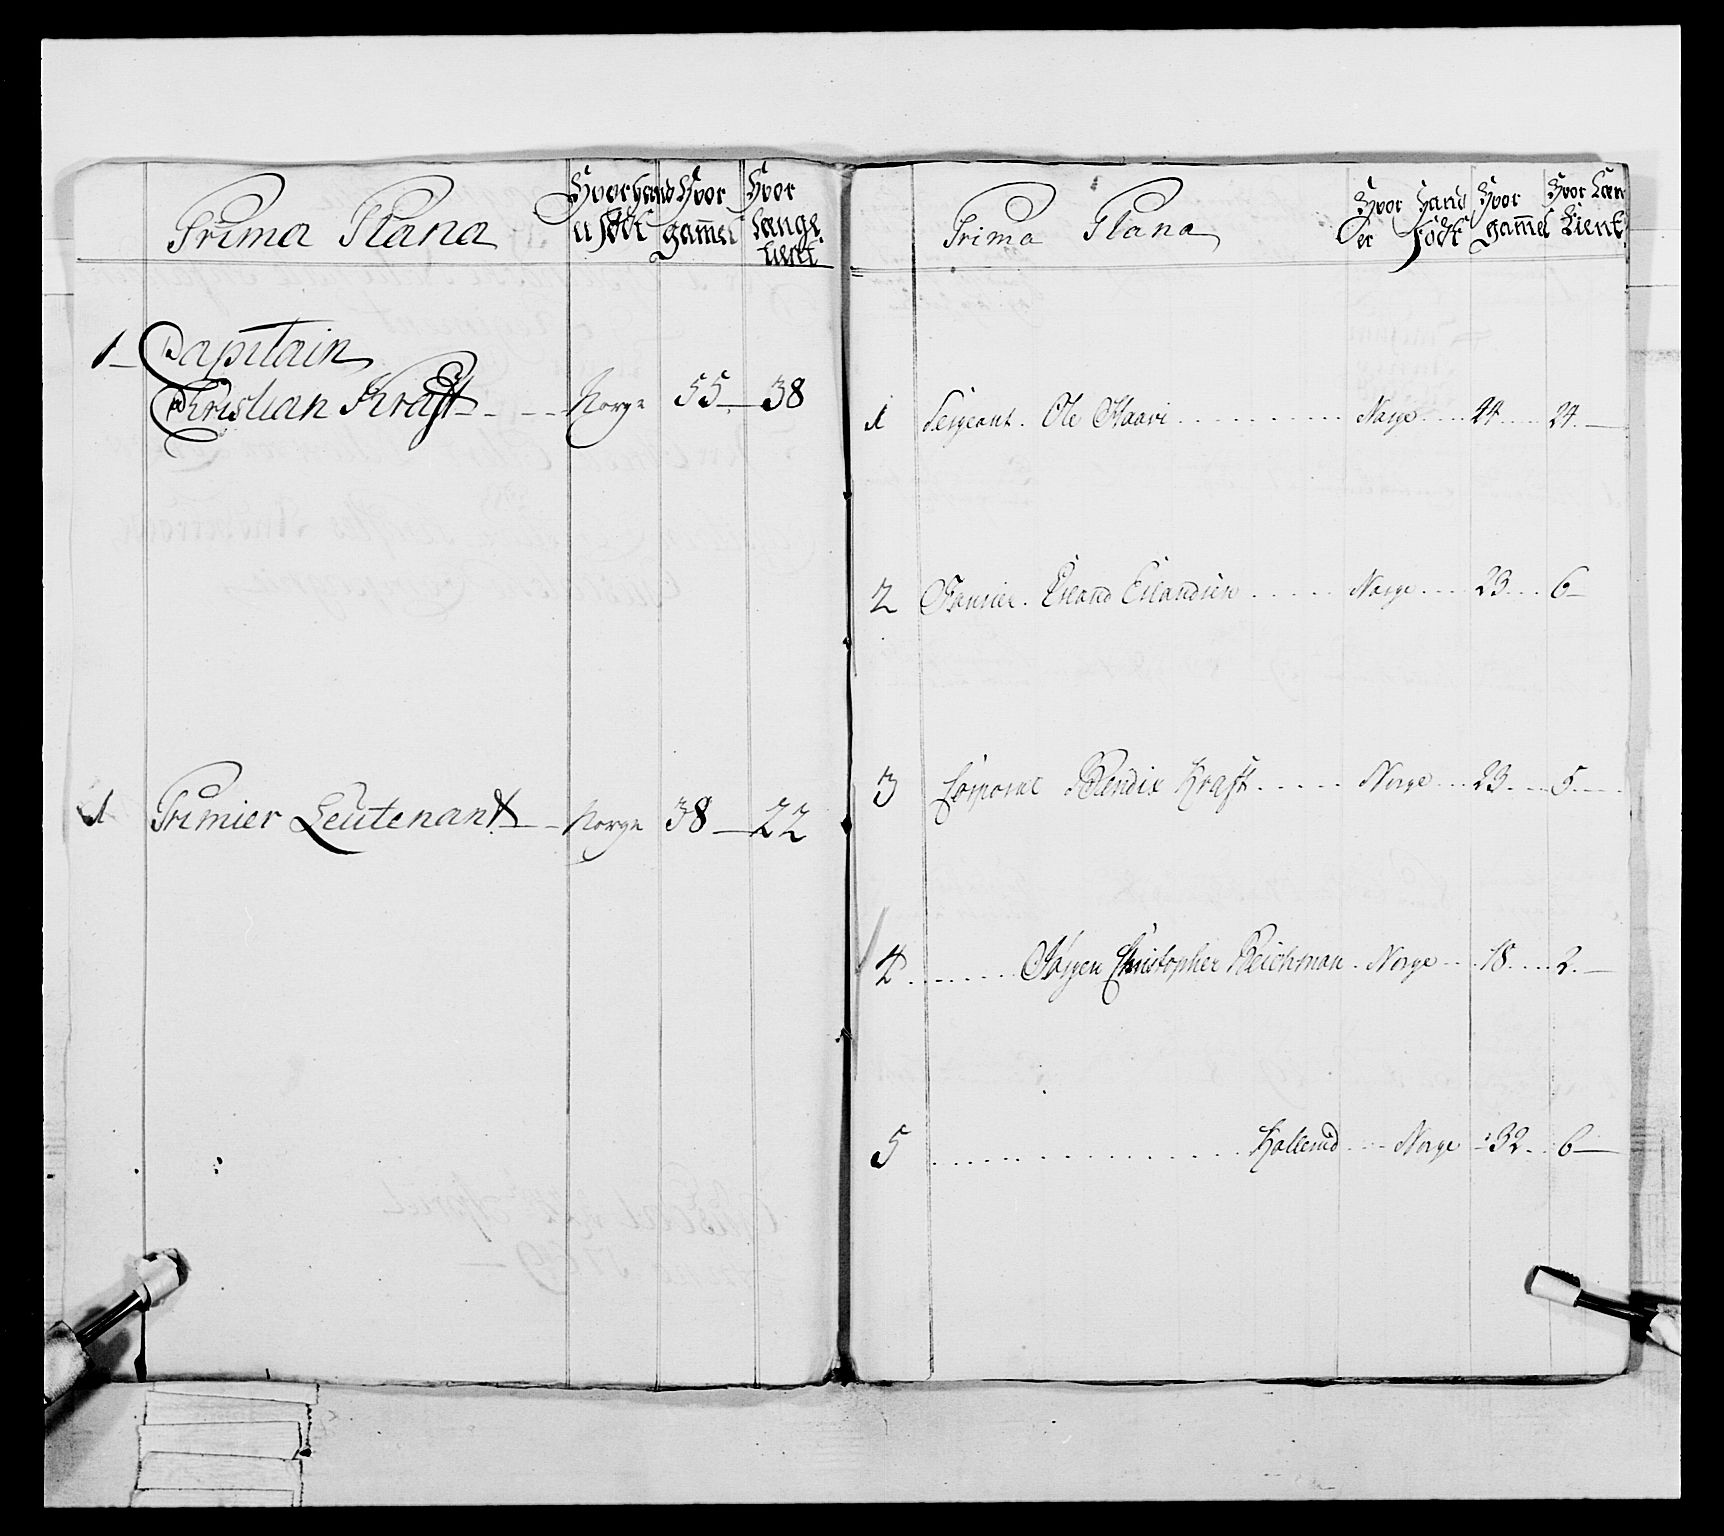 Prima Plana
Hvor hand
er født
Hvor
gam̄el
Hvor
Længe
tient
1 Capitain
Christian Kraft Norge 55 38
1 Primier Leutenant Norge 38 22
Prima Plana
Hvor Hand
er født
Hvor
gam̄el
Hvor Læn
tient
1 Sergeant. Ole Haavi Norge 44 24
2 Erland Erlandsen Norge 23 6
3 Corporal Bendix Kraft Norge 23 5
4 Christopher Reichman Norge 18 2
5 Norge 32 6